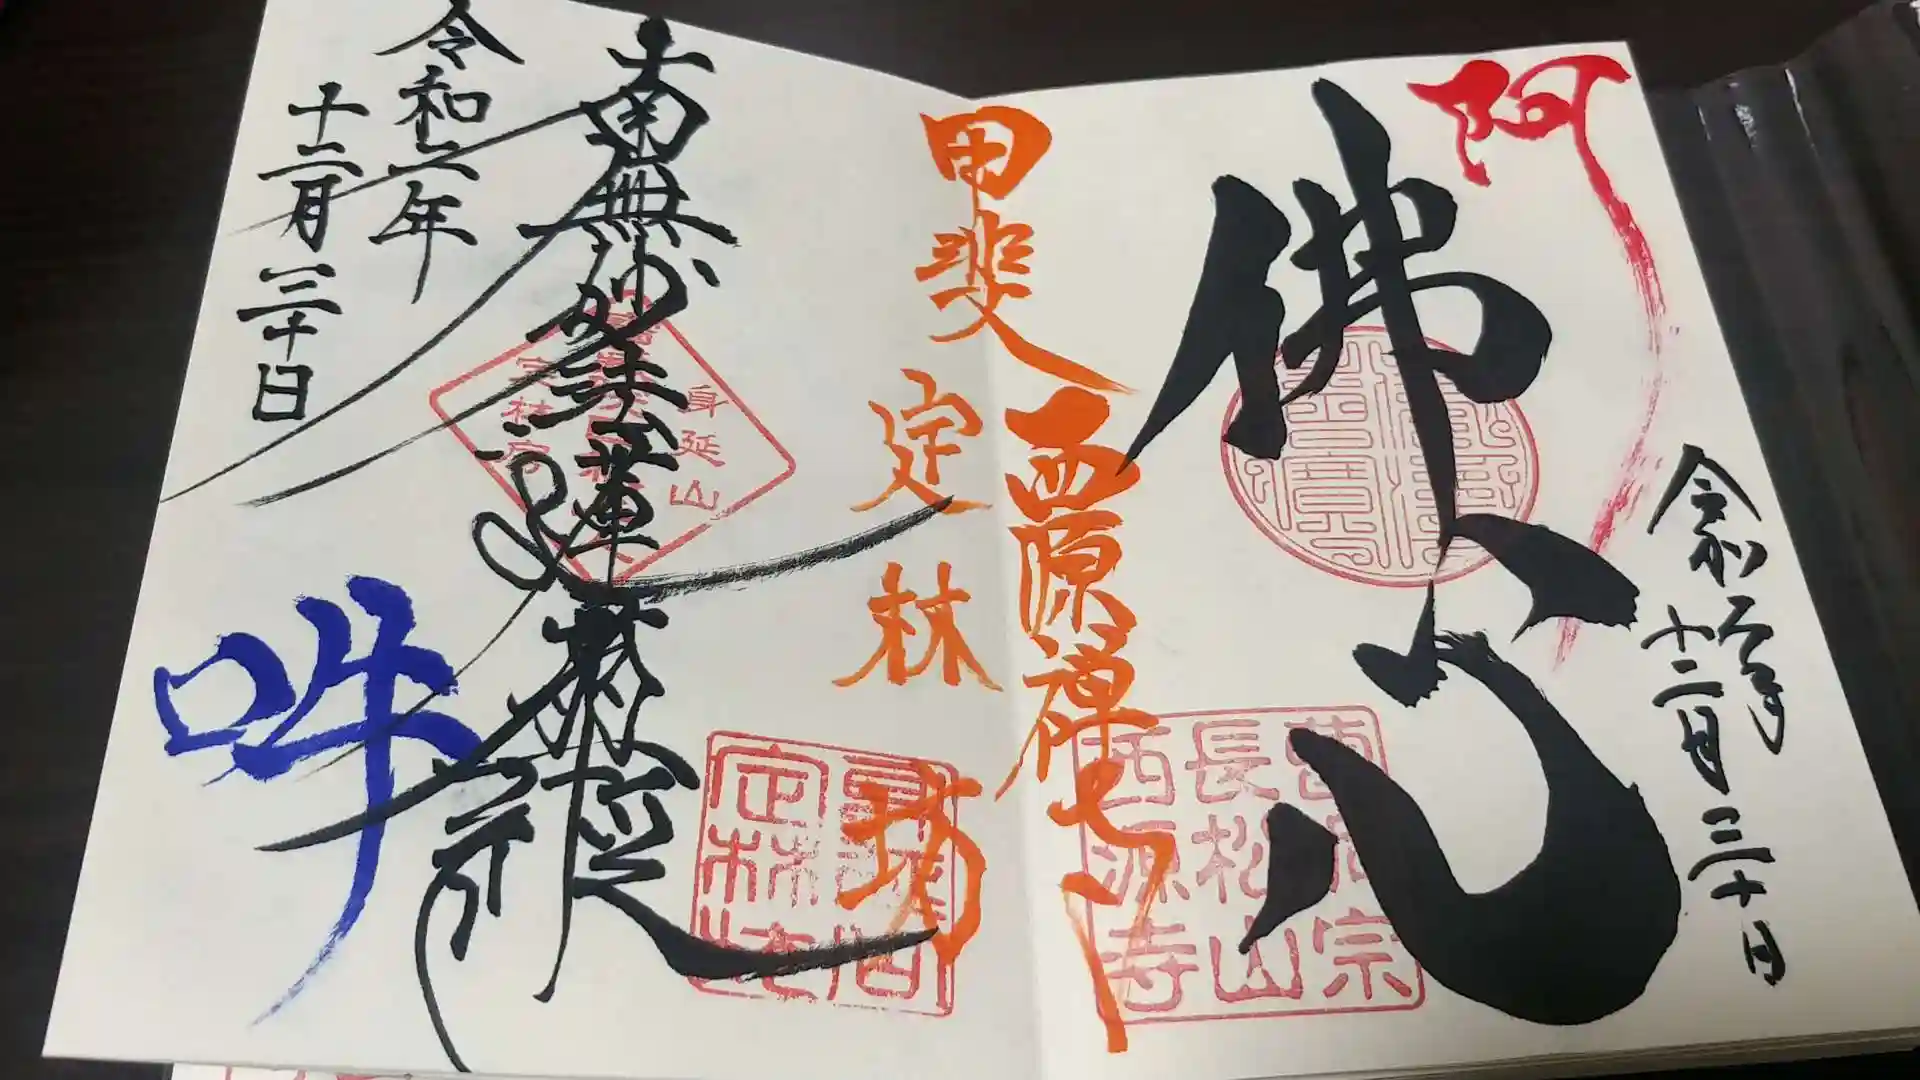 阿
令和二年
十二月三十日
佛心
甲斐
西源禅寺
曹洞宗
長松山
西源寺
定林坊
身延山
定林坊
南無妙法蓮華経
令和二年
十二月三十日
吽